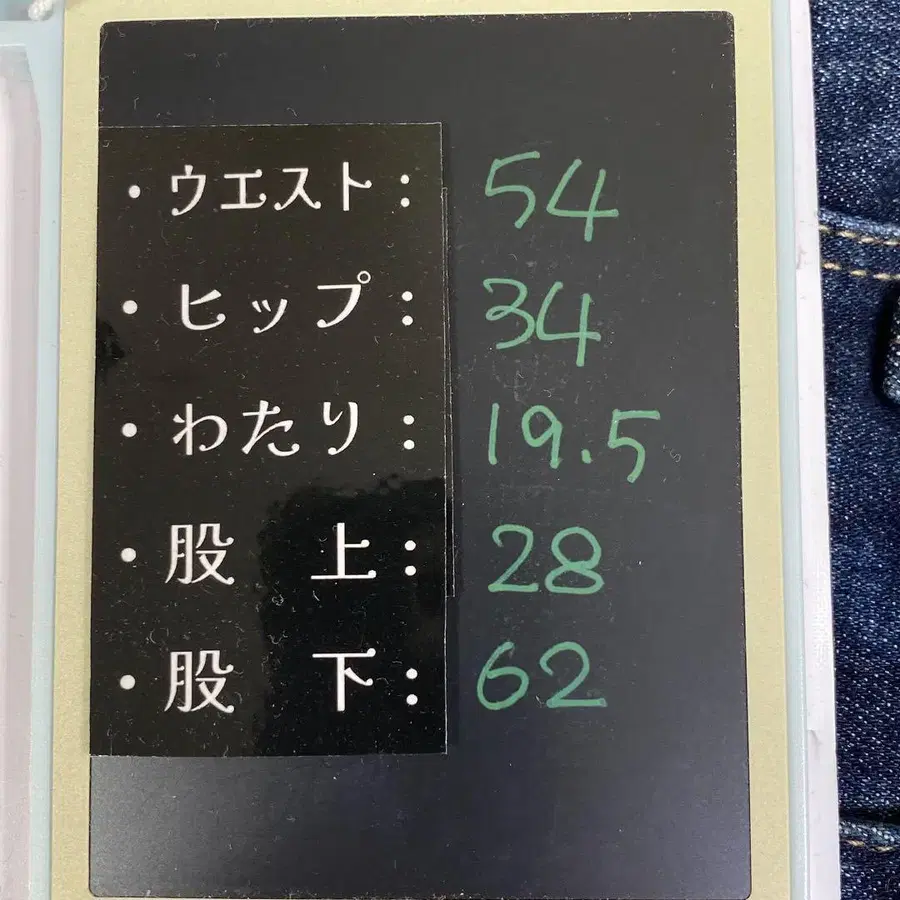 ・ウエスト: 54
・ヒップ: 34
・わたり: 19.5
・股 上: 28
・股 下: 62